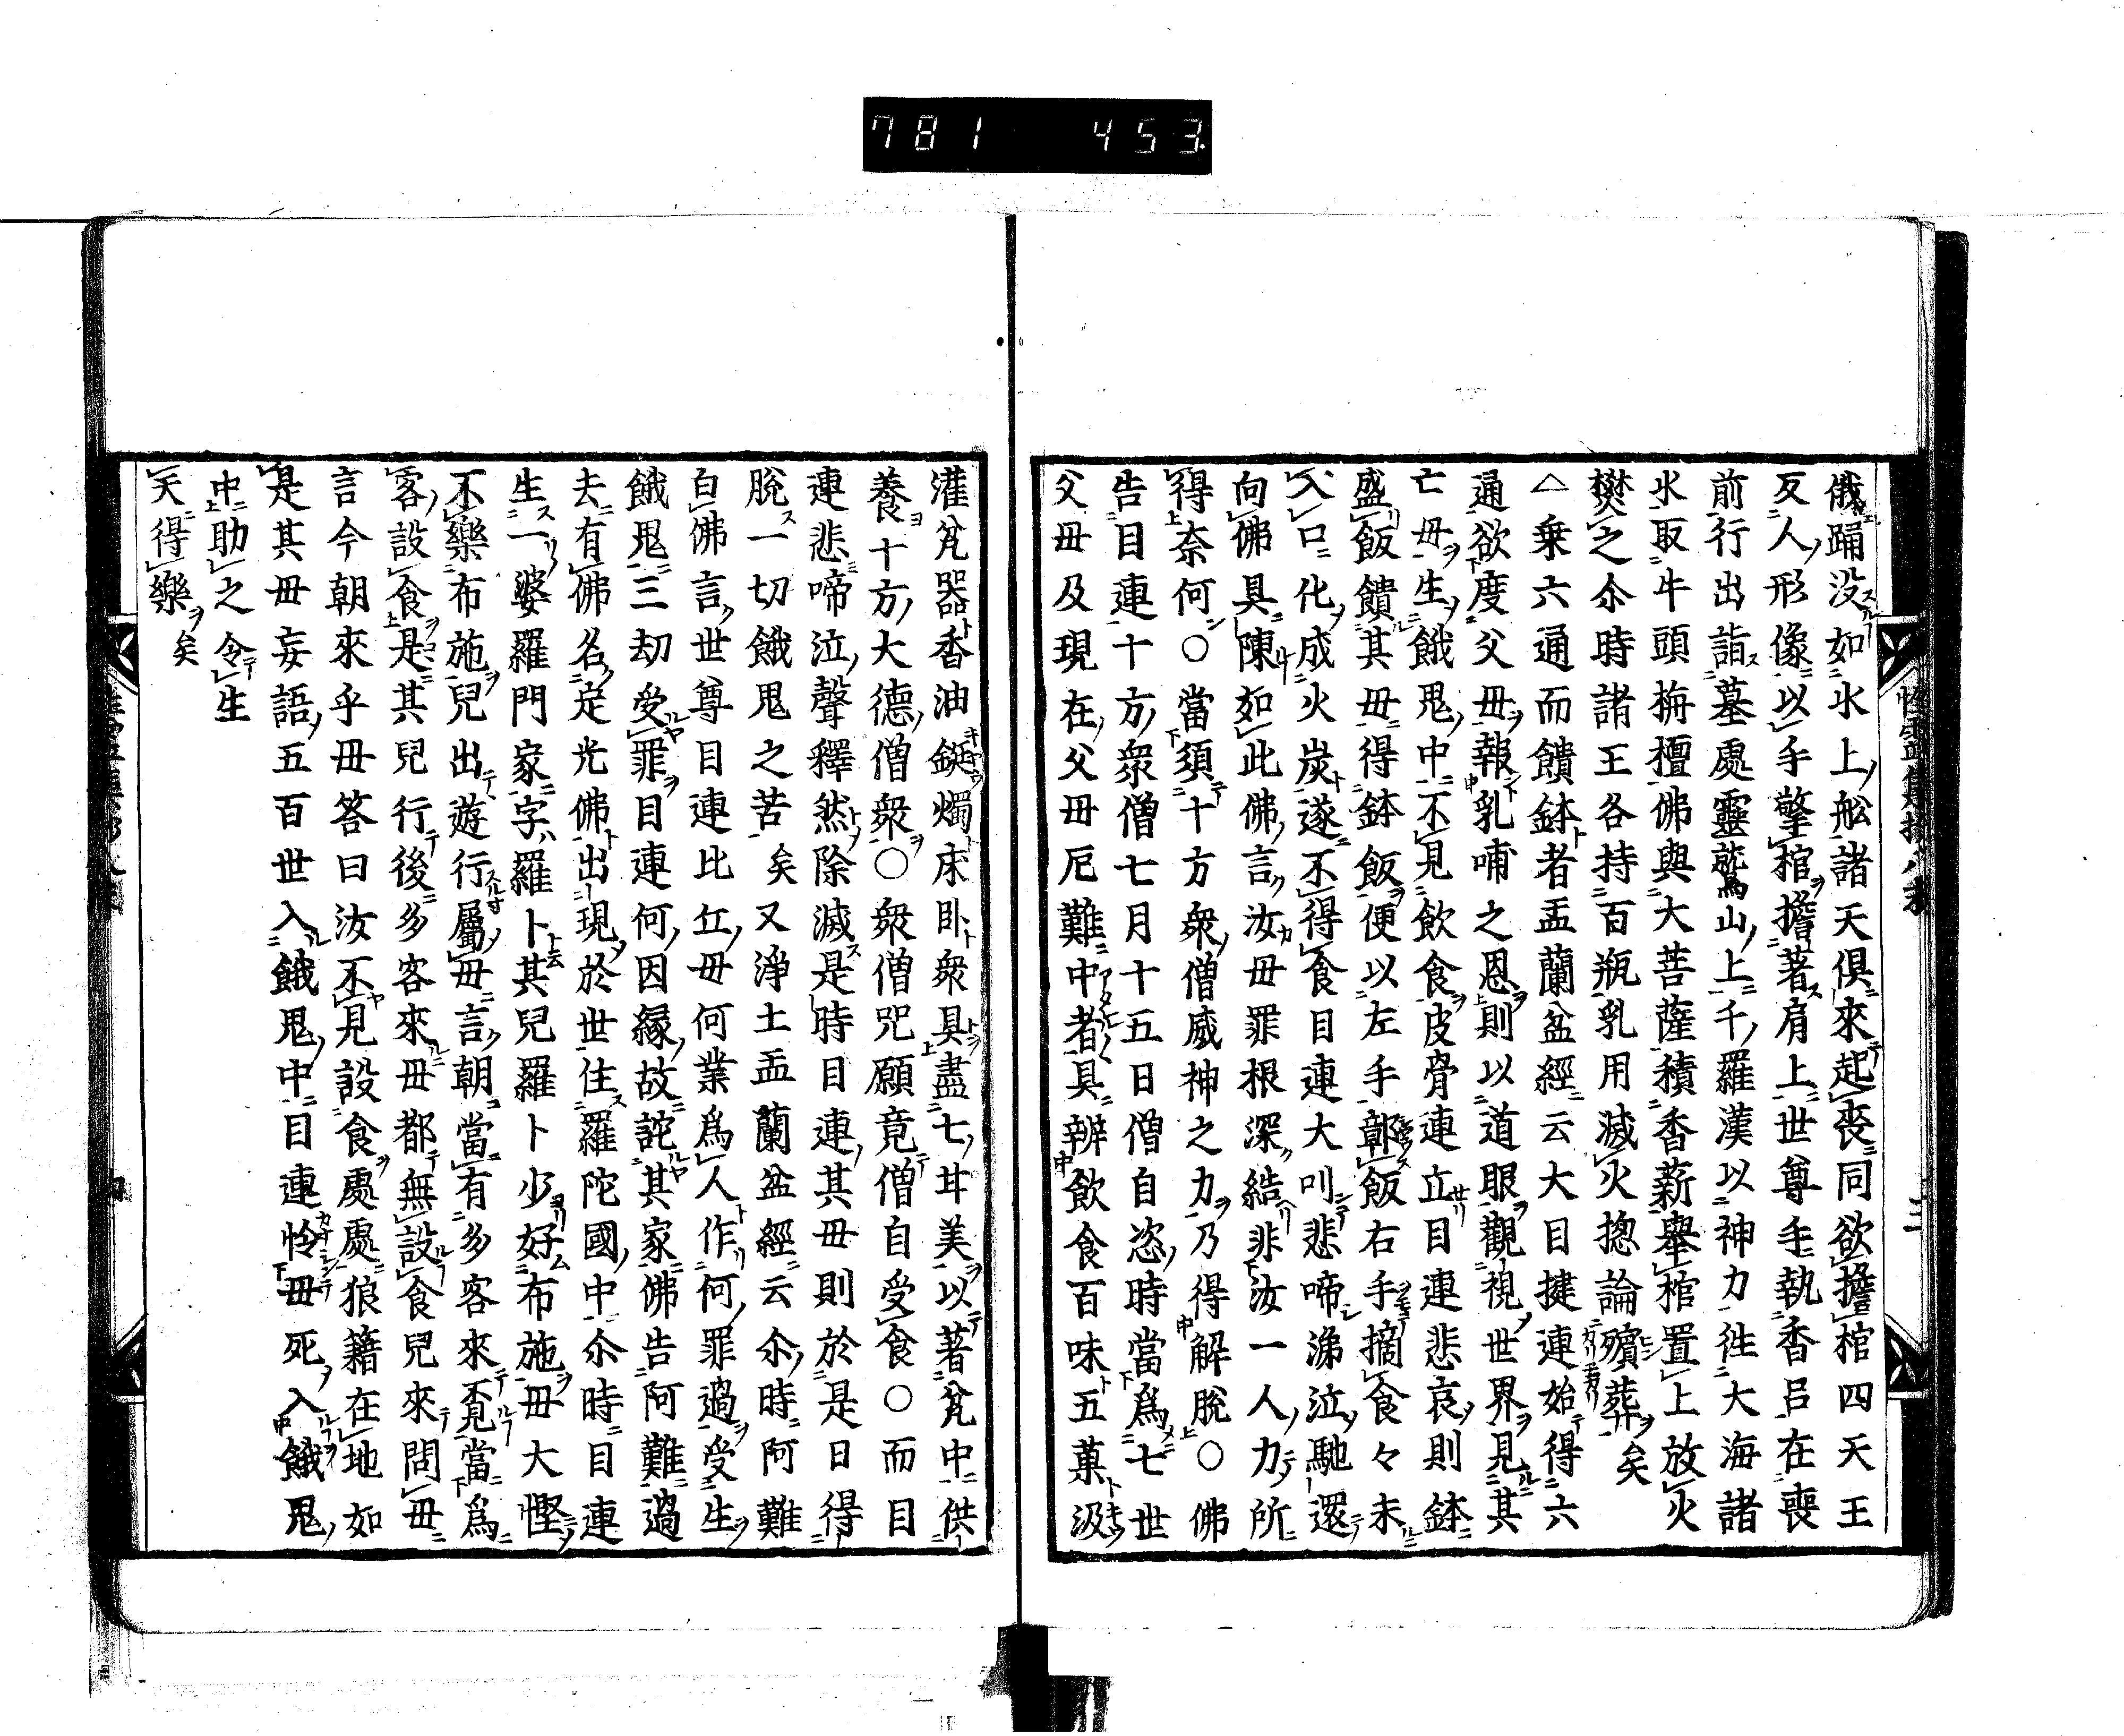 781 453
俄踊没如水上舩諸天俱來起喪同欲擔棺四天王
反人形像以手擎棺擔著肩上世尊手執香呂在喪
前行出詣墓處靈鷲山上千羅漢以神力徃大海諸
水取牛頭栴檀佛與大菩薩積香薪舉棺置上放火
樊之尒時諸王各持百瓶乳用滅火揔論殯葬矣
△乗六通而饋鉢者盂蘭盆經云大目揵連始得六
通欲度父毋報乳哺之恩則以道眼觀視世界見其
亡毋生餓鬼中不見飲食皮骨連立目連悲哀則鉢
盛飯饋其毋得鉢飯便以左手鄣飯右手摘食々未
入口化成火炭遂不得食目連大叫悲啼涕泣馳還
向佛具陳如此佛言汝毋罪根深結非汝一人力所
得奈何○當須十方衆僧威神之力乃得解脫○佛
告目連十方衆僧七月十五日僧自恣時當爲七世
父毋及現在父毋厄難中者具辨飲食百味五菓汲
灌瓫器香油鋌燭床臥衆具盡七丗美以著瓫中供
養十方大德僧衆○衆僧咒願竟僧自受食○而目
連悲啼泣聲釋然除滅是時目連其毋則於是日得
脫一切餓鬼之苦矣又淨土盂蘭盆經云尒時阿難
白佛言世尊目連比丘毋何業爲人作何罪過受生
餓鬼三劫受罪目連何因緣故詫其家佛告阿難過
去有佛名定光佛出現於世住羅陀國中尒時目連
生一婆羅門家字羅卜其兒羅卜少好布施毋大慳
不樂布施兒出遊行屬毋言朝當有多客來覔當爲
客設食是其兒行後多客來毋都無設食兒來問毋
言今朝來乎毋答曰汝不見設食處處狼籍在地如
是其毋妄語五百世入餓鬼中目連怜毋死入餓鬼
中助之令生
天得樂矣